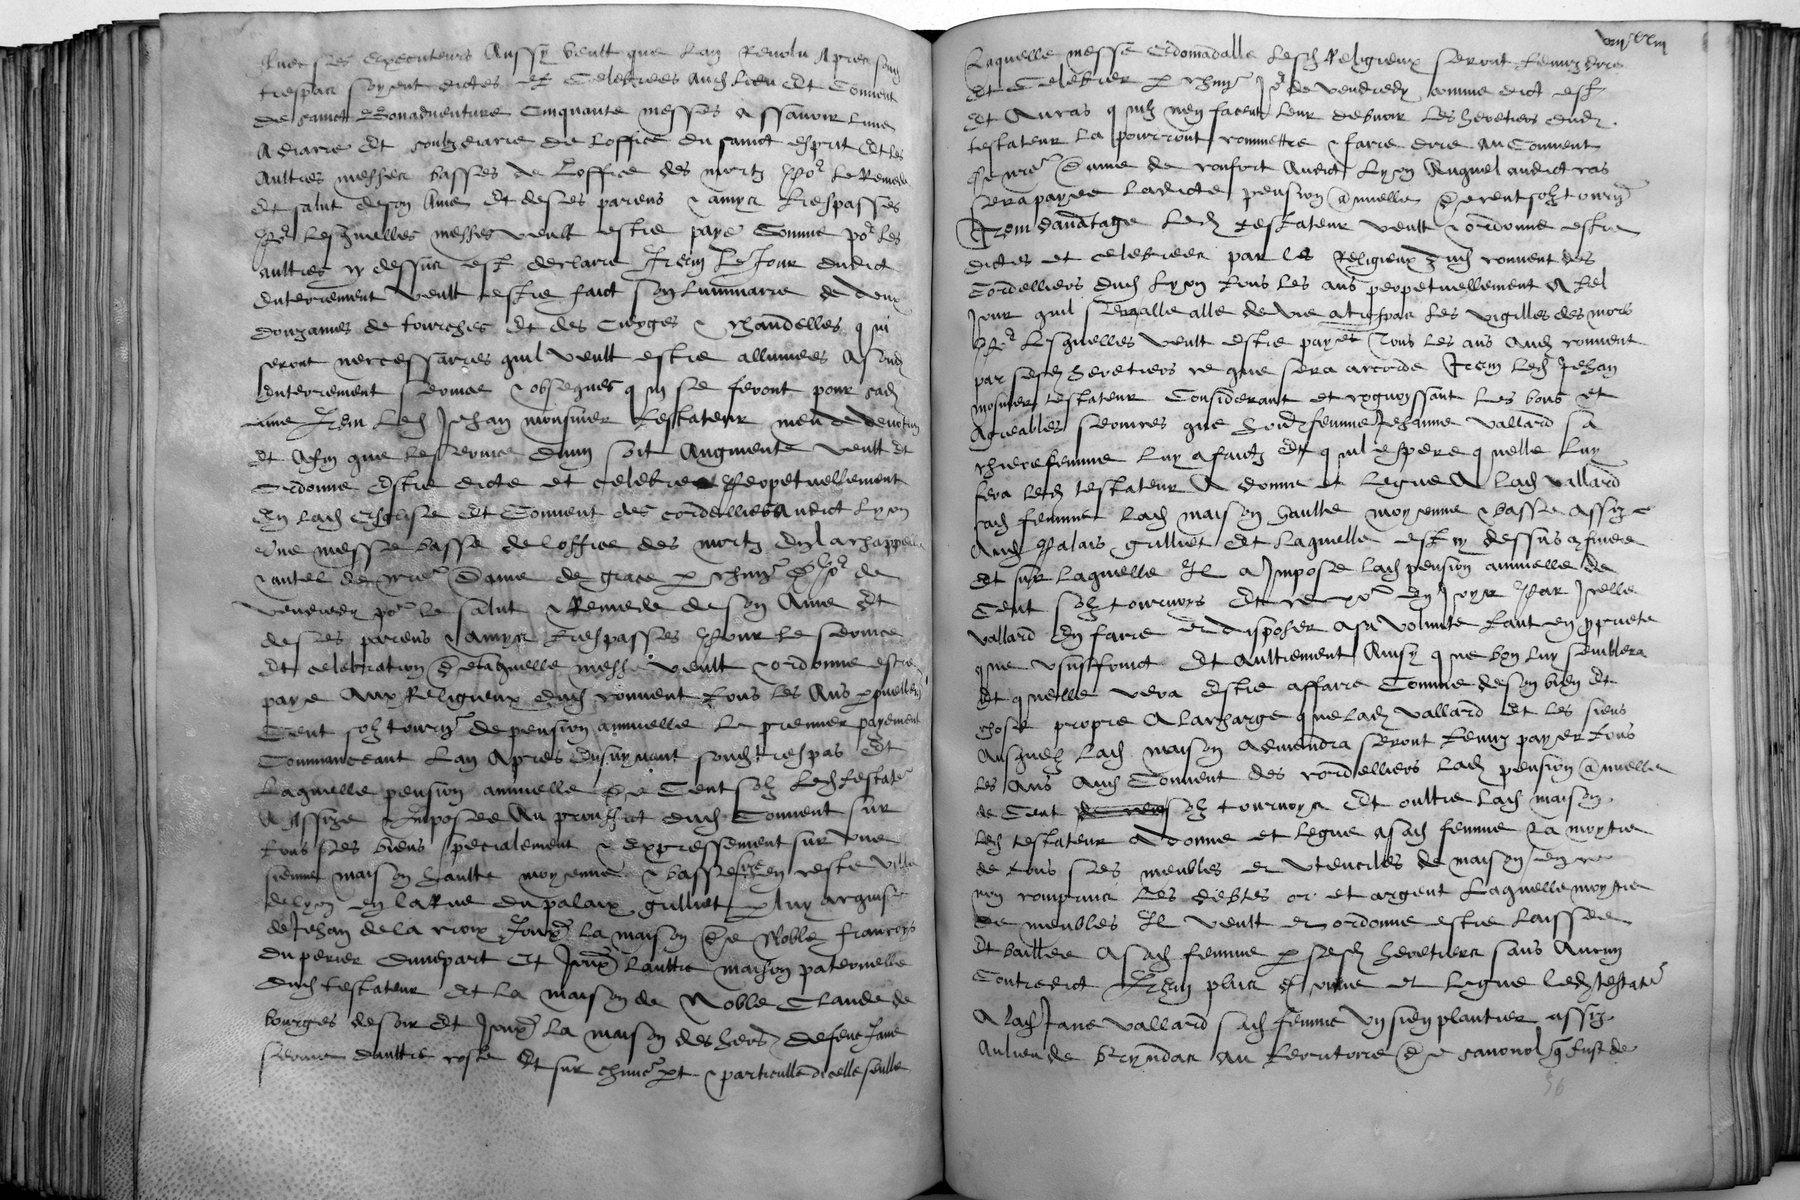 Avec ses executeurs Aussy veult que lan Revolu Apres son
trespas soyent dictes et Celebrees Aud lieu et Convent
de sainct Bonadventure Cinquante messes Assavoir lune
A diacre et soubzdiacre de loffice du sainct esprit et les
Aultres messes basses de loffice des mortz Por le Remede
et salut de son Ame et de ses parens & amys trespasses
Por lesquelles messes veult estre paye Comme por les
aultres cy dessus est declaire Item Le Jour dudict
enterrement veult estre faict son luminaire de deux
douzaines de tourches et des Cierges & chandelles qui
seront necessaires quil veult estre allumees A sond
enterrement service & obseques qui se feront pour sad
ame Item led Jehan mousnier testateur meu de devotion
et Afin que le service divin soit Augmente veult et
Ordonne estre dicte et celebree Perpetuellement
en lad Esglise et Convent des cordelliers Audict Lyon
Une messe basse de loffice des mortz en la chappelle
& autel de nre Dame de grace p chun Jor de
vendredy por le salut & Remede de son Ame et
de ses parens & amys trespasses Pour le service
et celebration de laquelle messe veult & ordonne estre
paye Aux Religieux dud convent tous les Ans
Cent solz tournois de pension annuelle Le premier payement
Commanceant lan Apres ensuyvant sond trespas et
Laquelle pension annuelle de Cent solz led testater
A Assize & Imposee Au prouffict dud Convent sur
tous ses biens specialement & expressement sur une
sienne maison haulte moyenne & basse size en ceste ville
de lyon en la Rue du palaix grilliet p luy acquise
de Jehan de la croix Joux la maison de Noble francoys
du perier dunepart Et Joux laultre maison paternelle
dud testateur et la maison de Noble Claude de
bourges de soir et Joux la maison des hers de feue Jane
daultre coste et sur chune pt & particulle dicelle seulle
Laquelle messe Edomadalle lesd Religieux seront tenuz dire
et Celebrer p chun Jor de vendredy comme dict est
et Au cas quilz nen facent leur debvoir les heretiers dud
testateur la pourront commettre & faire dire Au Convent
de nre Dame de confort Audict Lyon Auquel audict cas
sera payee ladicte pension annuelle de cent solz tourn
Item davantage led testateur veult & ordonne estre
dictes et celebrees par les Religieux dud convent des
Cordelliers dud Lyon tous les ans perpetuellement A tel
Jour quil alle de vie a trespas les vigilles des mors
Por Lesquelles veult estre paye tous les ans Aud convent
par sesd heretiers ce que sera accorde Item led Jehan
mosnier testateur Considerant et cognoissant les bons et
Agreables services que femme Jehanne vallard sa
chiere femme luy a faictz et quil espere quelle luy
fera led testateur A donne et legue A lad vallard
sad femme lad maison haulte moyenne & basse assize
Aud Palais grilliet et laquelle est cy dessus
et sur laquelle Il a Impose lad pension annuelle de
Cent solz tournoys et en Joyr Par Icelle
vallard en faire et disposer a sa volunte tant en priete
que usuffruict et aultrement Ainsi que bon luy semblera
et quelle verra estre affaire Comme de son bien et
chose propre A la charge que lad vallard et les siens
Ausquelz lad maison adviendra seront tenuz payer tous
les Ans Aud Convent des cordelliers lad pension annuelle
de Cent solz tournoys et oultre lad maison
led testateur A donne et legue a sad femme La moytie
de tous ses meubles et utencilles de maison en ce
non comprins les debtes or et argent Laquelle moytie
de meubles Il veult et ordonne estre laissee
et baillee A sad femme p sesd heretiers sans Aucun
Contredict Item plus donne et legue led testater
A lad Jane vallard sad femme Un sien plantier assiz
Au lieu de bryndas au territoire de